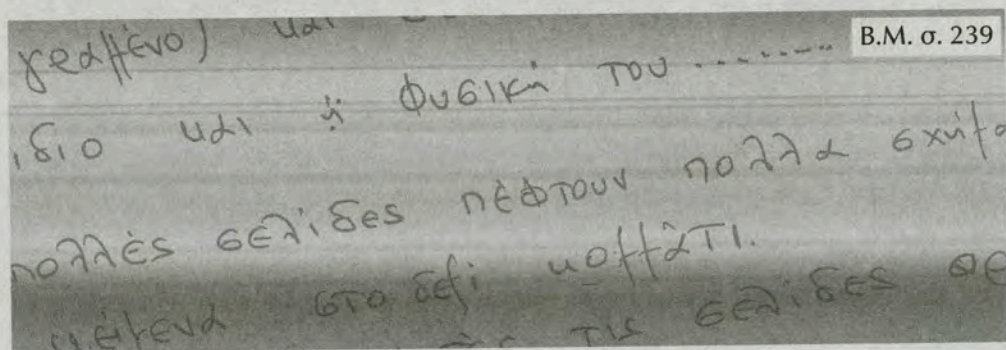 Β.Μ. σ. 239
γραμμένο) και
ίδιο και ἡ φυσική του ........
πολλές σελίδες πέφτουν πολλα σχήμα
κείμενα στο δεξί κομμὰτι.
τις σελίδες θε